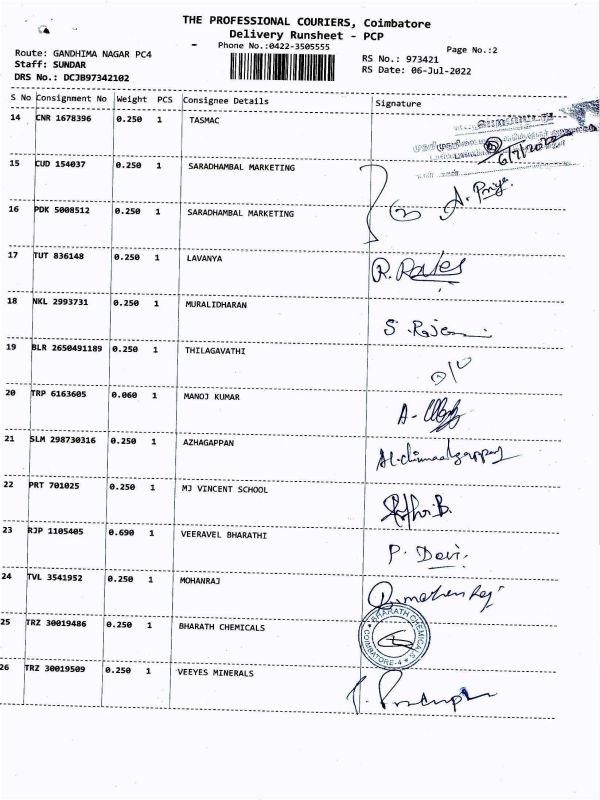 THE PROFESSIONAL COURIERS, Coimbatore
Delivery Runsheet - PCP
Phone No.:0422-3505555
Page No.:2
Route: GANDHIMA NAGAR PC4
Staff: SUNDAR
DRS No.: DCJB97342102
RS No.: 973421
RS Date: 06-Jul-2022
S No Consignment No Weight PCS Consignee Details Signature
14 CNR 1678396 0.250 1 TASMAC
6/7/2022
15 CUD 154037 0.250 1 SARADHAMBAL MARKETING
A. Priya.
16 PDK 5008512 0.250 1 SARADHAMBAL MARKETING
17 TUT 836148 0.250 1 LAVANYA
18 NKL 2993731 0.250 1 MURALIDHARAN
19 BLR 2650491189 0.250 1 THILAGAVATHI
20 TRP 6163605 0.060 1 MANOJ KUMAR
21 SLM 298730316 0.250 1 AZHAGAPPAN
22 PRT 701025 0.250 1 MJ VINCENT SCHOOL
23 RJP 1105405 0.690 1 VEERAVEL BHARATHI
P. Devi.
24 TVL 3541952 0.250 1 MOHANRAJ
25 TRZ 30019486 0.250 1 BHARATH CHEMICALS
BHARATH CHEMICALS
COIMBATORE-4
26 TRZ 30019509 0.250 1 VEEYES MINERALS